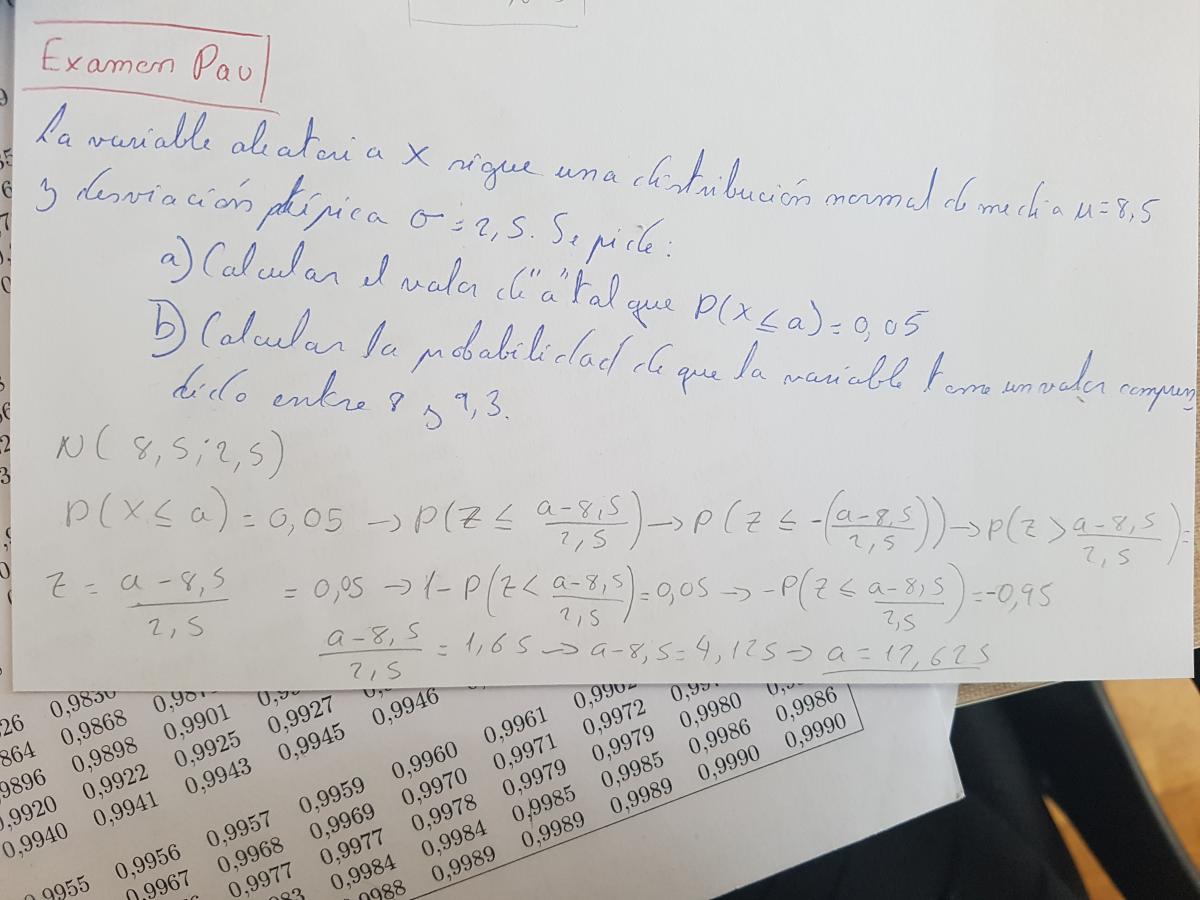 Examen Pau
La variable aleatoria X sigue una distribución normal de media μ=8,5
y desviación típica σ=2,5. Se pide:
a) Calcular el valor de "a" tal que P(X≤a)=0,05
b) Calcular la probabilidad de que la variable tome un valor compren
dido entre 8 y 9,3.
N(8,5;2,5)
P(X≤a)=0,05 → P(Z ≤ (a-8,5)/2,5) → P(Z ≤ -((a-8,5)/2,5)) → P(Z > (a-8,5)/2,5) =
Z = (a-8,5)/2,5 = 0,05 → 1-P(Z < (a-8,5)/2,5) = 0,05 → -P(Z ≤ (a-8,5)/2,5) = -0,95
(a-8,5)/2,5 = 1,65 → a-8,5=4,125 → a=12,625
0,9868 0,9901 0,9927 0,9946
9896 0,9898 0,9925 0,9945
0,9920 0,9922 0,9943
0,9940 0,9941
0,9955 0,9956 0,9957 0,9959 0,9960 0,9961 0,9962
0,9967 0,9968 0,9969 0,9970 0,9971 0,9972
0,9977 0,9977 0,9978 0,9979 0,9979 0,9980
0,9984 0,9984 0,9985 0,9985 0,9986 0,9986
0,9988 0,9989 0,9989 0,9989 0,9990 0,9990